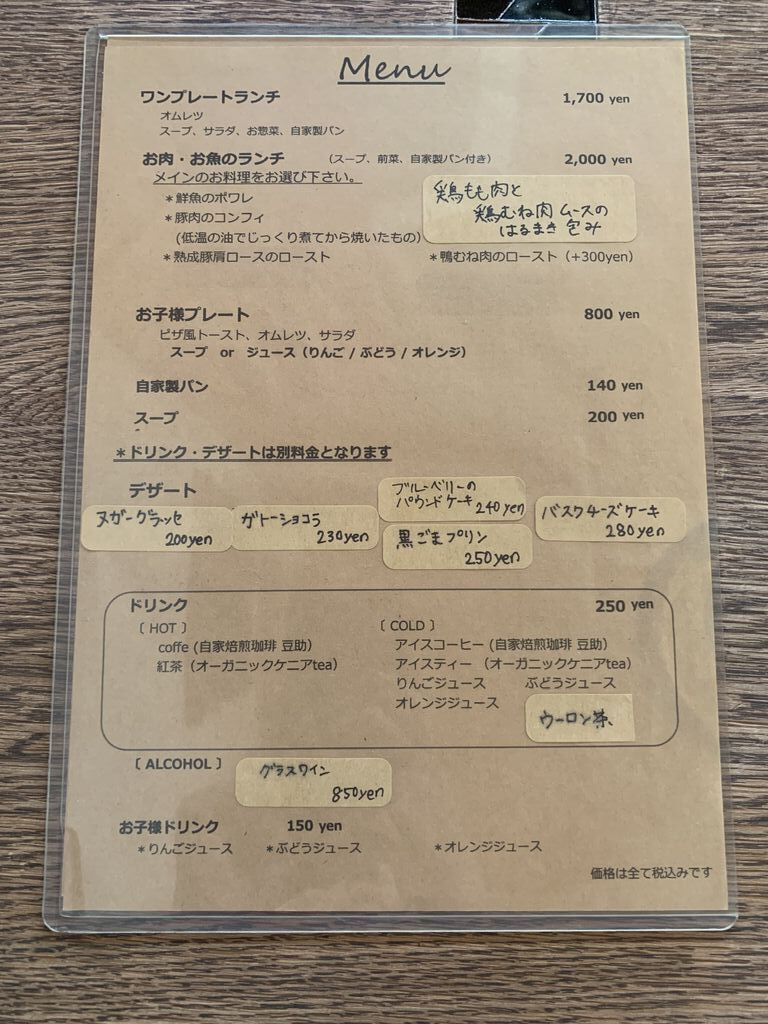 Menu
ワンプレートランチ 1,700 yen
オムレツ
スープ、サラダ、お惣菜、自家製パン
お肉・お魚のランチ （スープ、前菜、自家製パン付き） 2,000 yen
メインのお料理をお選び下さい。
＊鮮魚のポワレ
＊豚肉のコンフィ
(低温の油でじっくり煮てから焼いたもの)
鶏もも肉と
鶏むね肉 ムースの
はるまき 包み
＊熟成豚肩ロースのロースト ＊鴨むね肉のロースト（+300yen）
お子様プレート 800 yen
ピザ風トースト、オムレツ、サラダ
スープ or ジュース（りんご / ぶどう / オレンジ）
自家製パン 140 yen
スープ 200 yen
＊ドリンク・デザートは別料金となります
デザート
ヌガーグラッセ
200yen
ガトーショコラ
230yen
ブルーベリーの
パウンドケーキ 240yen
黒ごまプリン
250yen
バスクチーズケーキ
280yen
ドリンク 250 yen
〔 HOT 〕 〔 COLD 〕
coffe (自家焙煎珈琲 豆助) アイスコーヒー (自家焙煎珈琲 豆助)
紅茶（オーガニックケニアtea） アイスティー （オーガニックケニアtea）
りんごジュース ぶどうジュース
オレンジジュース ウーロン茶、
〔 ALCOHOL 〕 グラスワイン
850yen
お子様ドリンク 150 yen
＊りんごジュース ＊ぶどうジュース ＊オレンジジュース
価格は全て税込みです